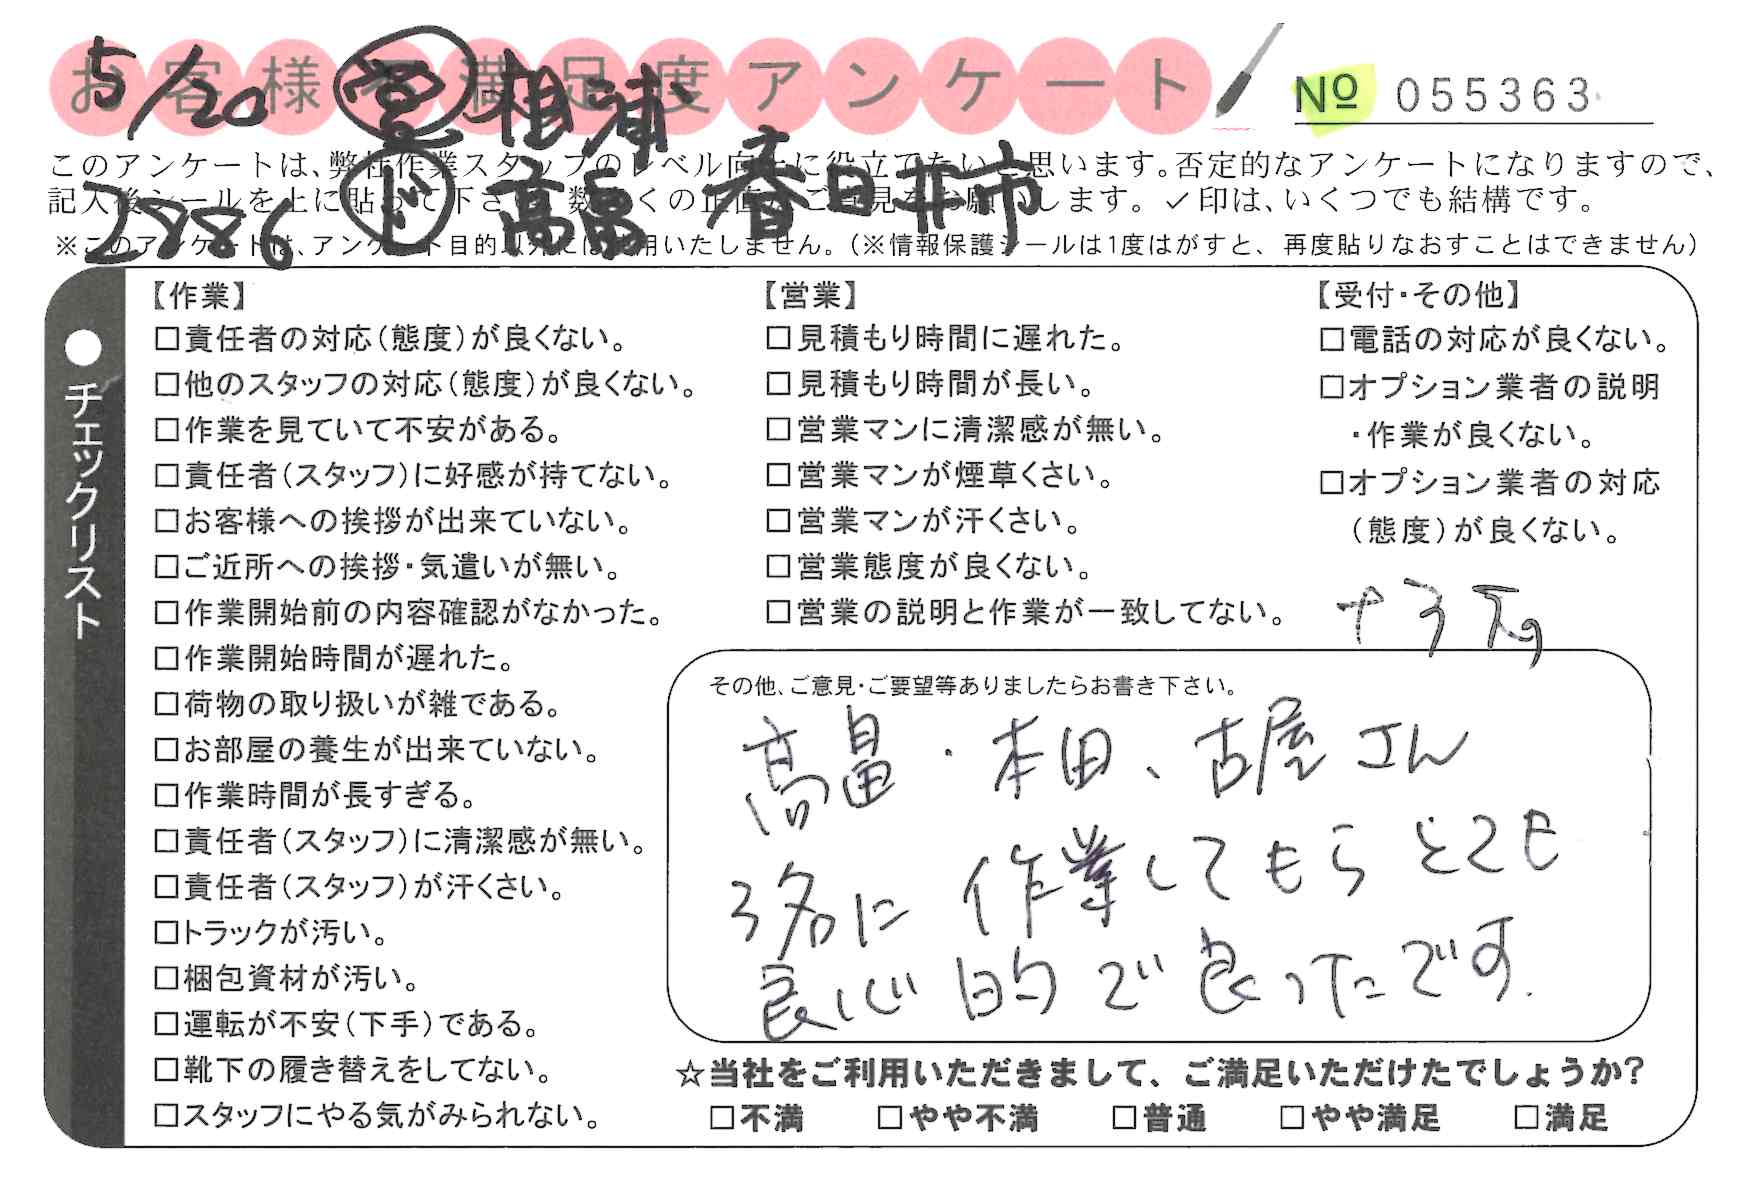 お客様の満足度アンケート
5/20 営 相津
№ 055363
このアンケートは、弊社作業スタッフのレベル向上に役立てたいと思います。否定的なアンケートになりますので、
記入後シールを上に貼って下さい。数多くの正直なご意見をお願いします。✓印は、いくつでも結構です。
2886 ド 高畠 春日井市
※このアンケートは、アンケート目的以外には使用いたしません。(※情報保護シールは1度はがすと、再度貼りなおすことはできません)
●チェックリスト
【作業】
□責任者の対応(態度)が良くない。
□他のスタッフの対応(態度)が良くない。
□作業を見ていて不安がある。
□責任者(スタッフ)に好感が持てない。
□お客様への挨拶が出来ていない。
□ご近所への挨拶・気遣いが無い。
□作業開始前の内容確認がなかった。
□作業開始時間が遅れた。
□荷物の取り扱いが雑である。
□お部屋の養生が出来ていない。
□作業時間が長すぎる。
□責任者(スタッフ)に清潔感が無い。
□責任者(スタッフ)が汗くさい。
□トラックが汚い。
□梱包資材が汚い。
□運転が不安(下手)である。
□靴下の履き替えをしてない。
□スタッフにやる気がみられない。
【営業】
□見積もり時間に遅れた。
□見積もり時間が長い。
□営業マンに清潔感が無い。
□営業マンが煙草くさい。
□営業マンが汗くさい。
□営業態度が良くない。
□営業の説明と作業が一致してない。
【受付・その他】
□電話の対応が良くない。
□オプション業者の説明
・作業が良くない。
□オプション業者の対応
(態度)が良くない。
その他、ご意見・ご要望等ありましたらお書き下さい。
高畠・本田、古屋さん
3名に作業してもらとても
良心的で良ったです.
☆当社をご利用いただきまして、ご満足いただけたでしょうか?
□不満 □やや不満 □普通 □やや満足 □満足